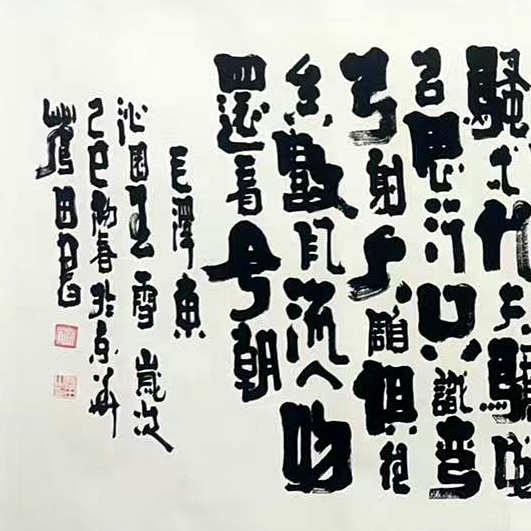 騷一代天驕成
吉思汗只識彎
弓射大雕俱往
矣數風流人物
還看今朝
毛澤東
沁園春雪 歲次
巳初春於京華